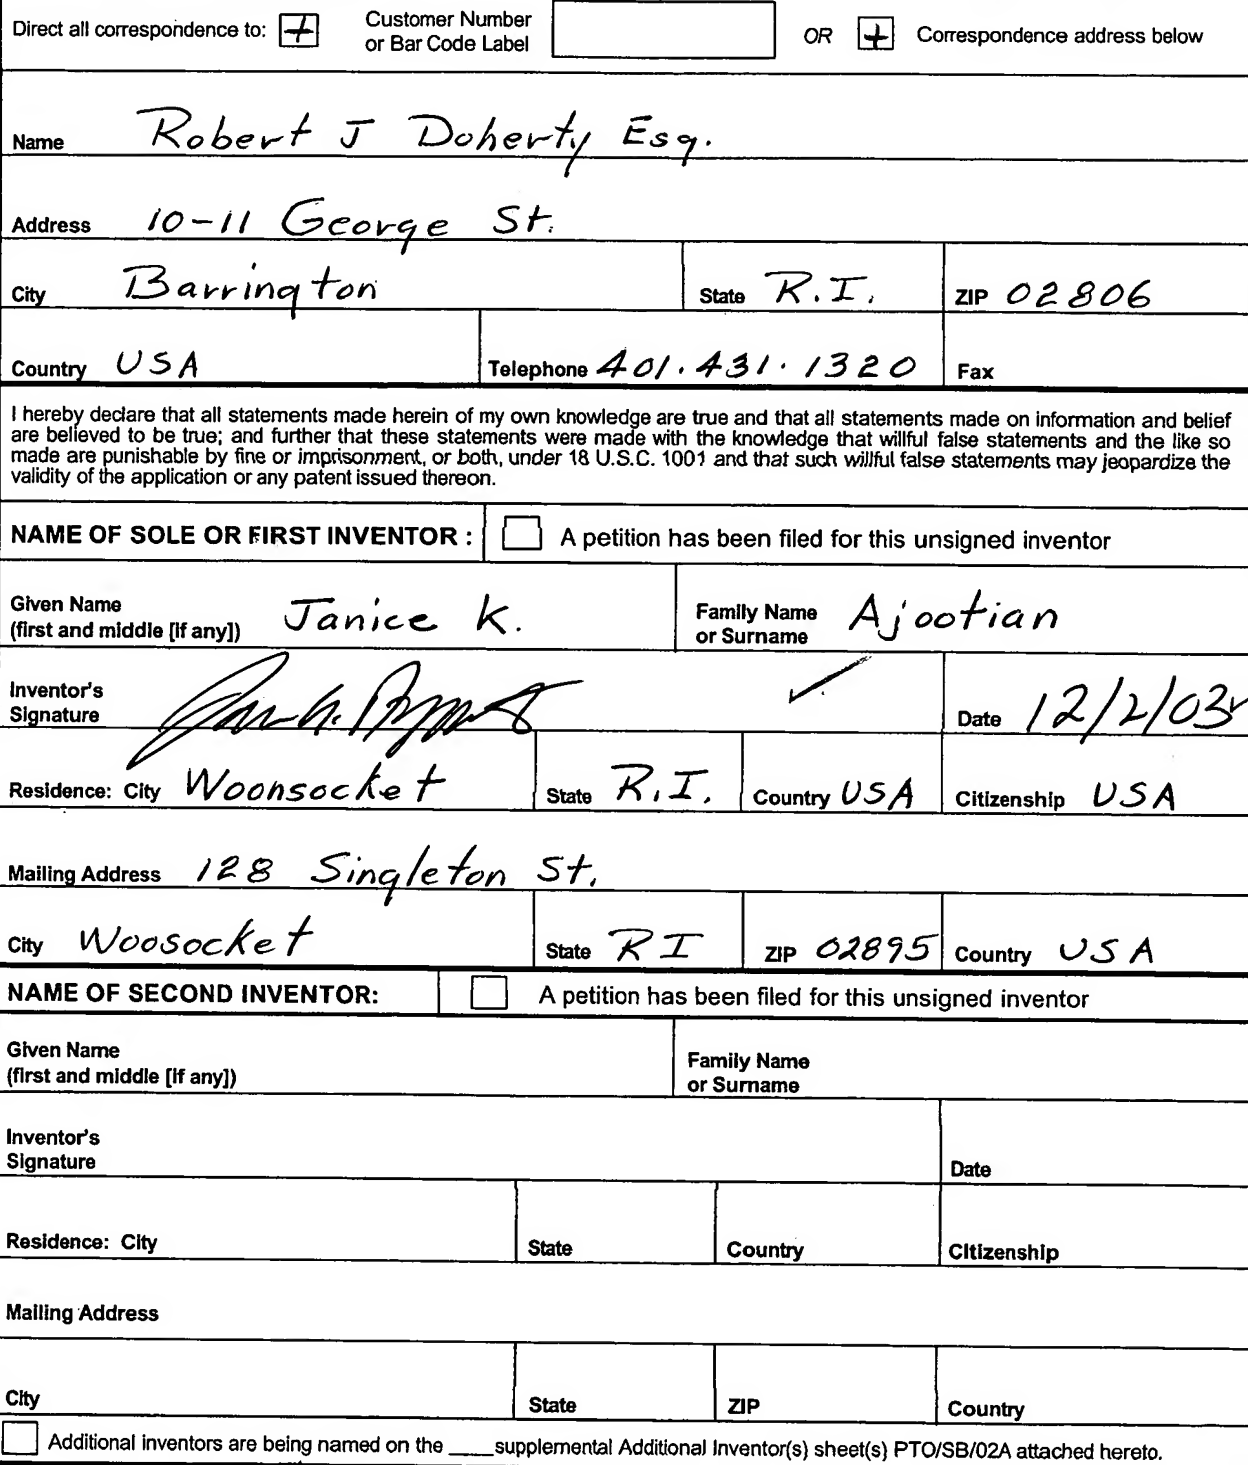 Direct all correspondence to: + Customer Number or Bar Code Label OR + Correspondence address below
Name Robert J Doherty Esq.
Address 10-11 George St.
City Barrington State R.I. ZIP 02806
Country USA Telephone 401.431.1320 Fax
I hereby declare that all statements made herein of my own knowledge are true and that all statements made on information and belief
are believed to be true; and further that these statements were made with the knowledge that willful false statements and the like so
made are punishable by fine or imprisonment, or both, under 18 U.S.C. 1001 and that such willful false statements may jeopardize the
validity of the application or any patent issued thereon.
NAME OF SOLE OR FIRST INVENTOR : A petition has been filed for this unsigned inventor
Given Name
(first and middle [if any]) Janice K. Family Name
or Surname Ajootian
Inventor's
Signature Date 12/2/03
Residence: City Woonsocket State R.I. Country USA Citizenship USA
Mailing Address 128 Singleton St.
City Woosocket State RI ZIP 02895 Country USA
NAME OF SECOND INVENTOR: A petition has been filed for this unsigned inventor
Given Name
(first and middle [if any]) Family Name
or Surname
Inventor's
Signature Date
Residence: City State Country Citizenship
Mailing Address
City State ZIP Country
Additional inventors are being named on the ____supplemental Additional Inventor(s) sheet(s) PTO/SB/02A attached hereto.